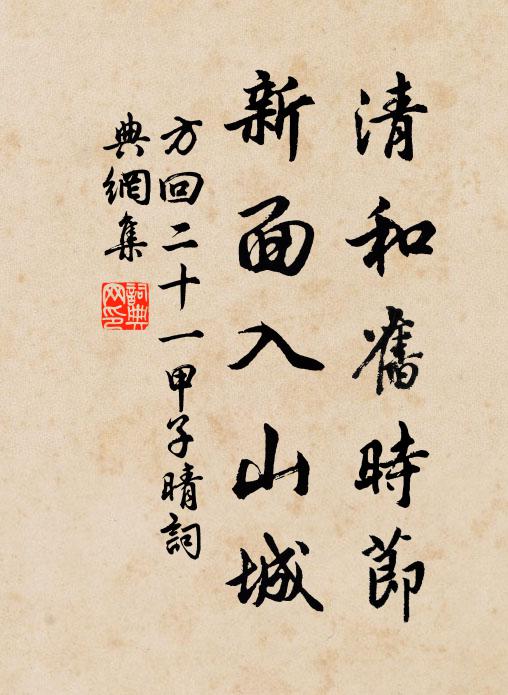 清和舊時節
新面入山城
方回二十一甲子晴詞
典網集
詞典网印